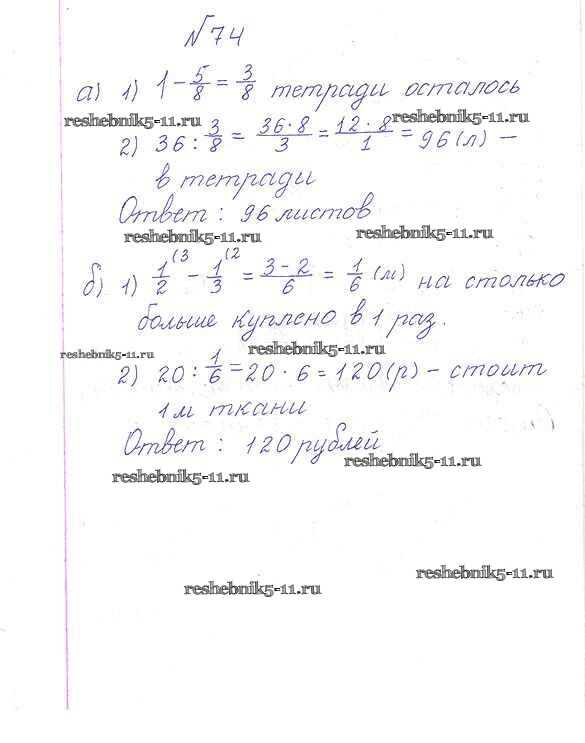 №74
а) 1) 1 - 5/8 = 3/8 тетради осталось
reshebnik5-11.ru reshebnik5-11.ru
2) 36 : 3/8 = 36·8/3 = 12·8/1 = 96 (л) –
в тетради
Ответ: 96 листов
reshebnik5-11.ru reshebnik5-11.ru
б) 1) 1/2 (3 - 1/3 (2 = 3-2/6 = 1/6 (м) на столько
больше куплено в 1 раз.
reshebnik5-11.ru reshebnik5-11.ru
2) 20 : 1/6 = 20 · 6 = 120 (р) – стоит
1м ткани
Ответ: 120 рублей
reshebnik5-11.ru reshebnik5-11.ru
reshebnik5-11.ru reshebnik5-11.ru